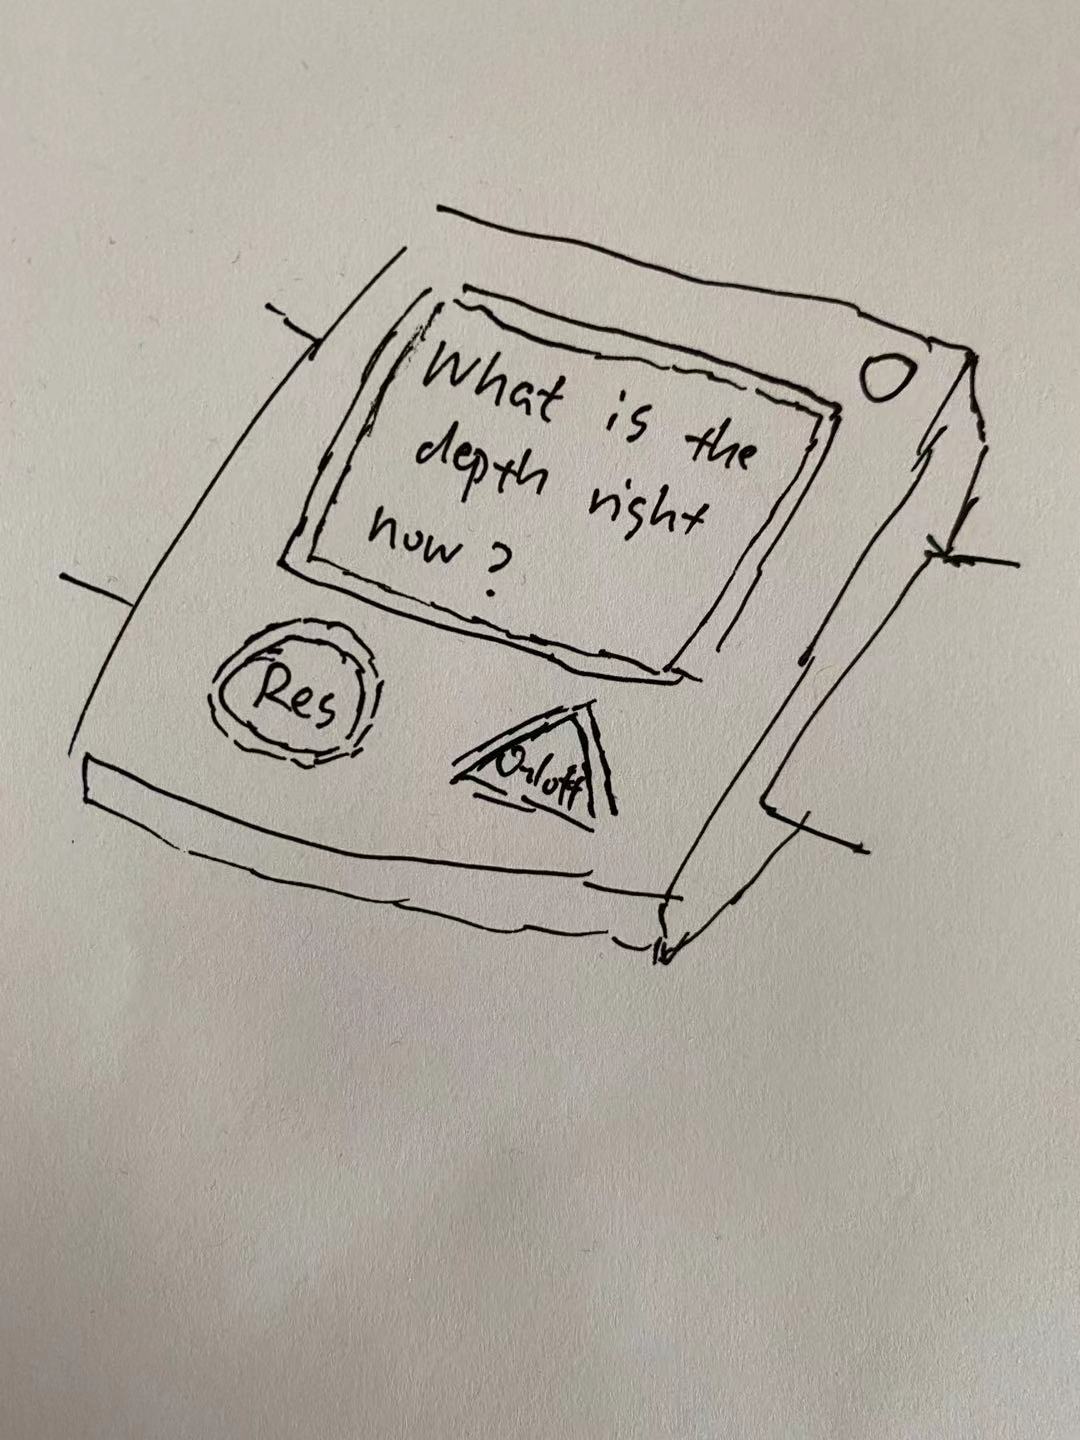 What is the
depth right
now?
Res
On/off